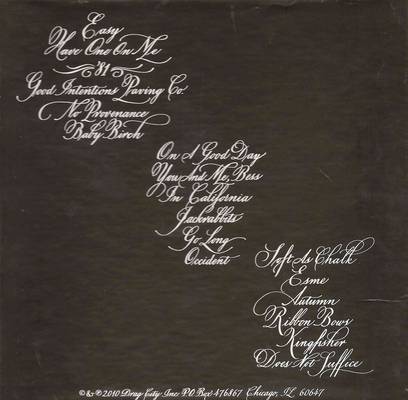 Easy
Have One On Me
'81
Good Intentions Paving Co.
No Provenance
Baby Birch
On A Good Day
You And Me, Bess
In California
Jackrabbits
Go Long
Occident
Soft As Chalk
Esme
Autumn
Ribbon Bows
Kingfisher
Does Not Suffice
© & ℗ 2010 Drag City Inc. P.O. Box 476867 Chicago, IL 60647